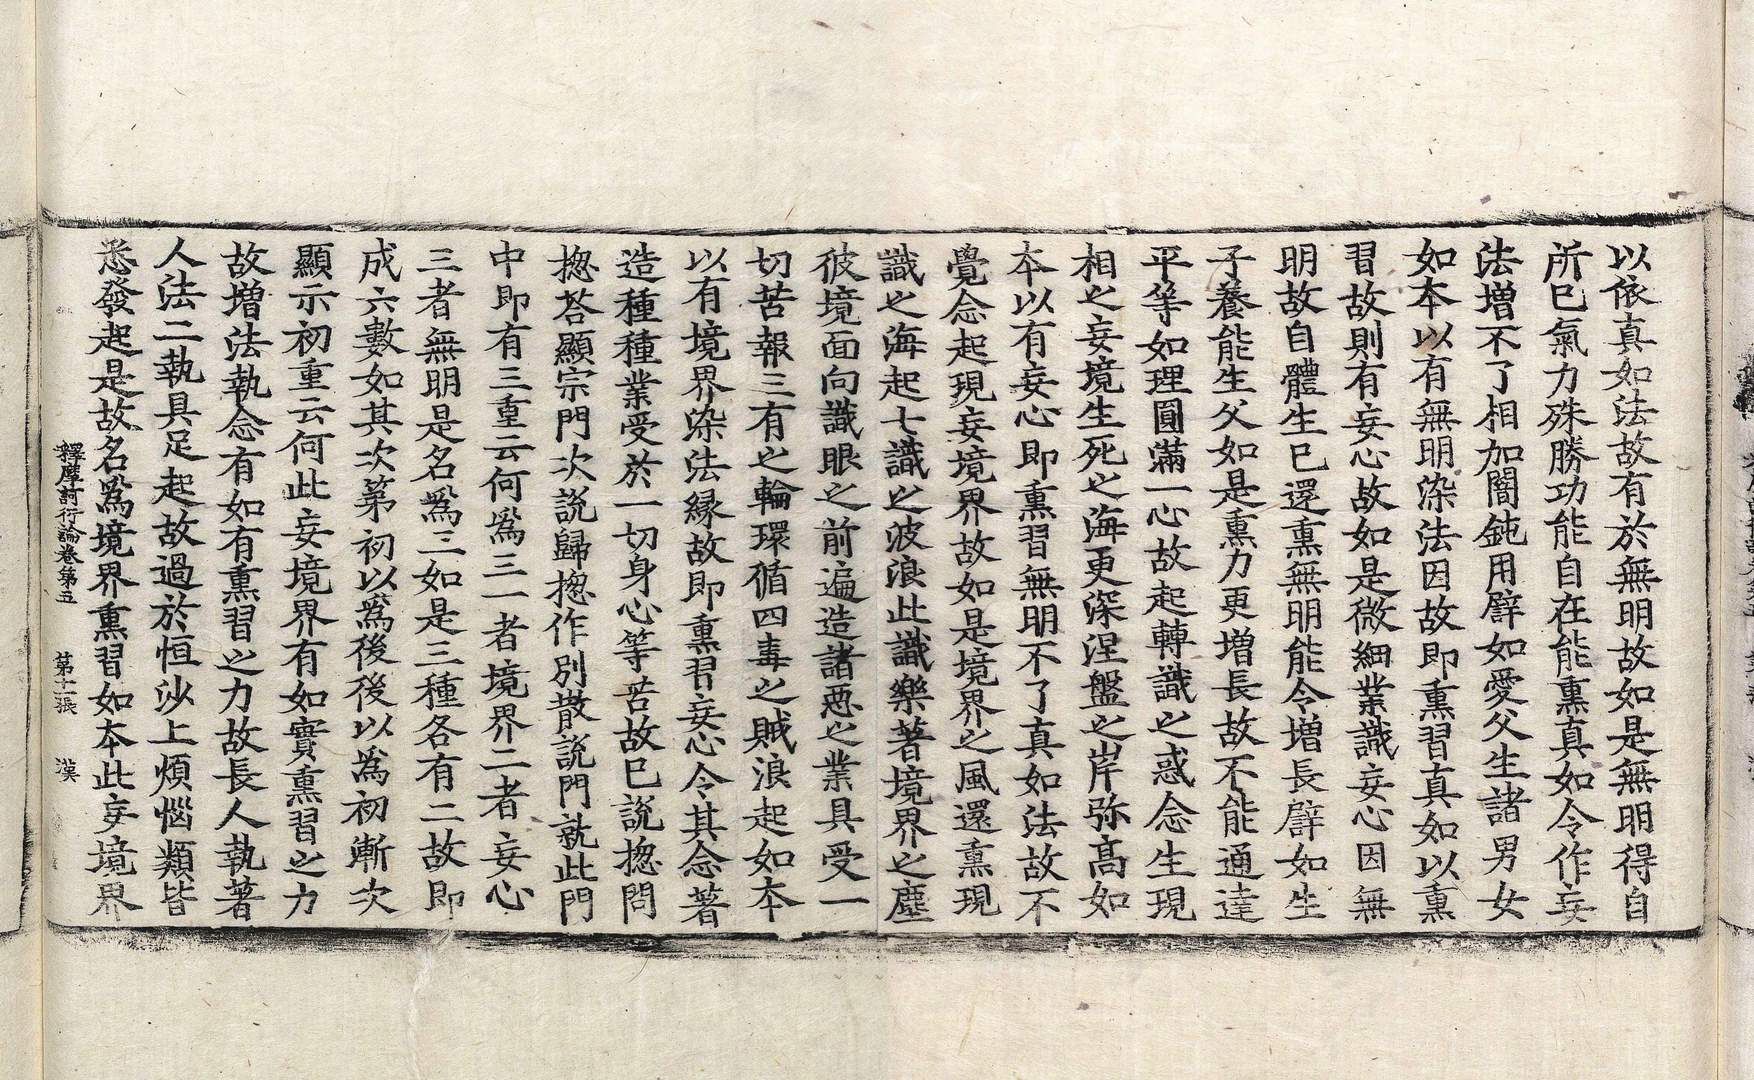 以依真如法故有於無明故如是無明得自
所巳氣力殊勝功能自在能熏真如令作妄
法增不了相加闇鈍用譬如愛父生諸男女
如本以有無明染法因故即熏習真如以熏
習故則有妄心故如是微細業識妄心因無
明故自體生巳還熏無明能令增長譬如生
子養能生父如是熏力更增長故不能通達
平等如理圓滿一心故起轉識之惑念生現
相之妄境生死之海更深涅盤之岸弥高如
本以有妄心即熏習無明不了真如法故不
覺念起現妄境界故如是境界之風還熏現
識之海起七識之波浪此識樂著境界之塵
彼境面向識眼之前遍造諸惡之業具受一
切苦報三有之輪環循四毒之賊浪起如本
以有境界染法縁故即熏習妄心令其念著
造種種業受於一切身心等苦故巳說揔問
揔荅顯宗門次說歸揔作別散說門就此門
中即有三重云何爲三一者境界二者妄心
三者無明是名爲三如是三種各有二故即
成六數如其次第初以爲後後以為初漸次
顯示初重云何此妄境界有如實熏習之力
故增法執念有如有熏習之力故長人執著
人法二執具足起故過於恒沙上煩惱類皆
悉發起是故名爲境界熏習如本此妄境界
釋摩訶衍論卷第五 第十一張 漢